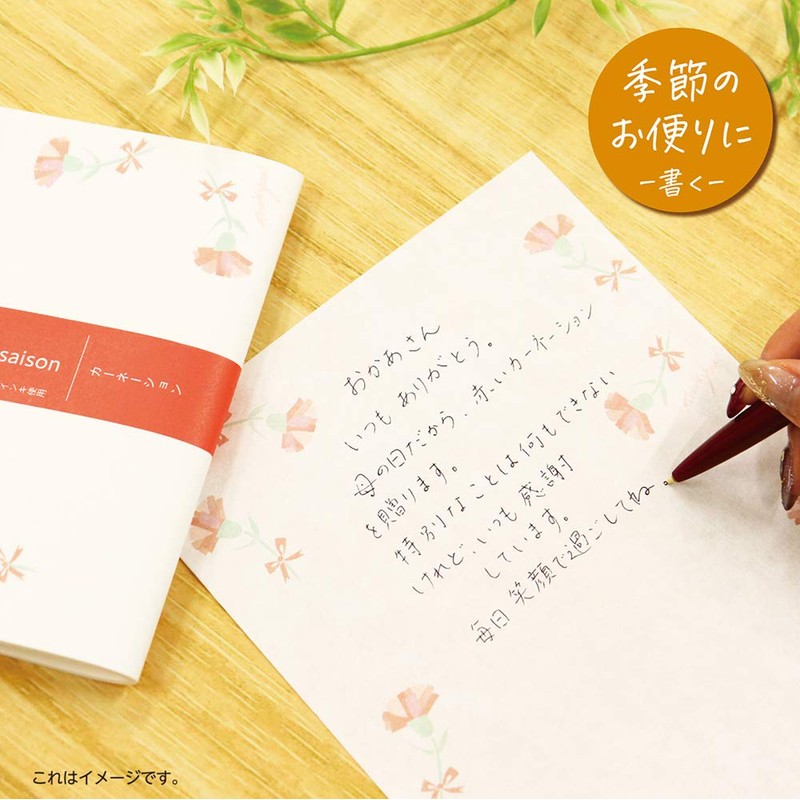 季節の
お便りに
－書く－
saison
カーネーション
インキ使用
おかあさん
いつも ありがとう。
母の日だから、赤いカーネーション
を贈ります。
特別なことは何もできない
けれど、いつも 感謝
しています。
毎日 笑顔で過ごしてね。
これはイメージです。